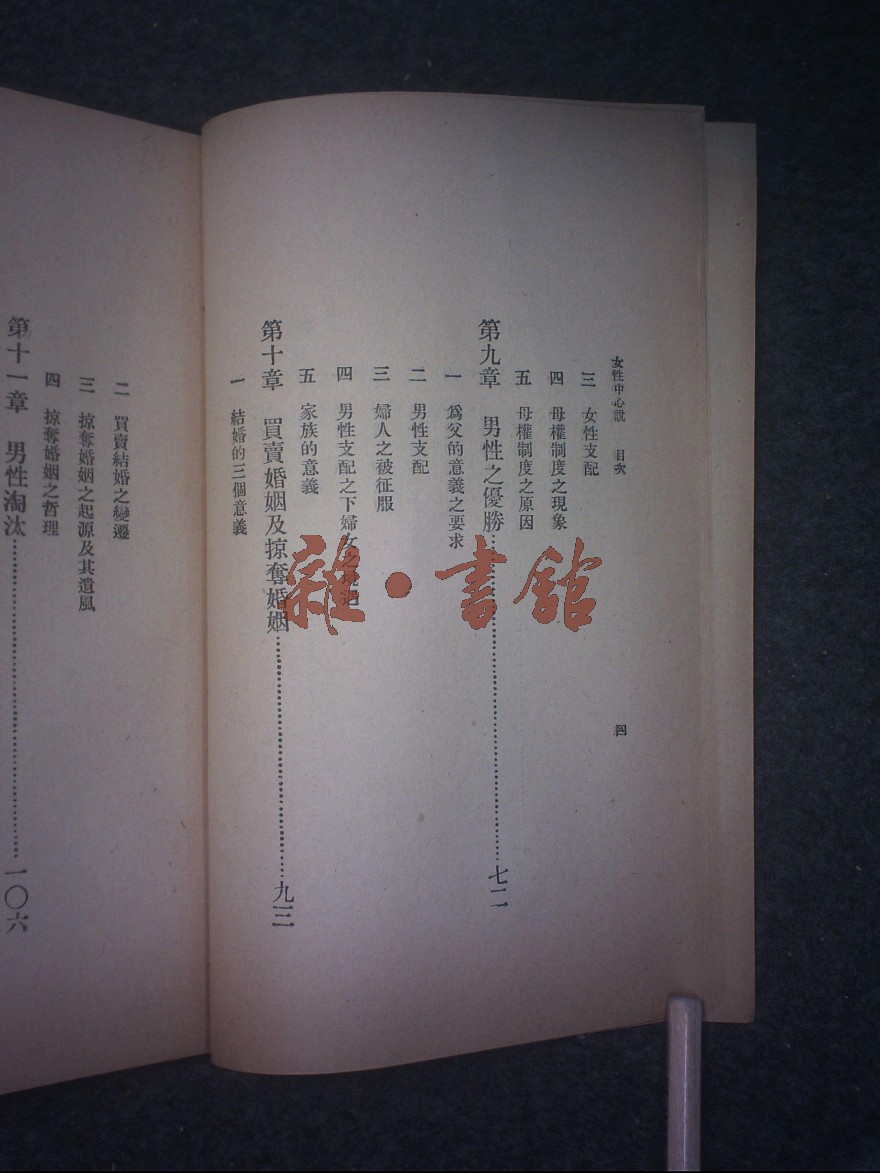 女性中心說 目次 四
三 女性支配
四 母權制度之現象
五 母權制度之原因
第九章 男性之優勝……七二
一 爲父的意義之要求
二 男性支配
三 婦人之被征服
四 男性支配之下婦女之境遇
五 家族的意義
第十章 買賣婚姻及掠奪婚姻……九三
一 結婚的三個意義
二 買賣結婚之變遷
三 掠奪婚姻之起源及其遺風
四 掠奪婚姻之哲理
第十一章 男性淘汰……一〇六
雜·書館